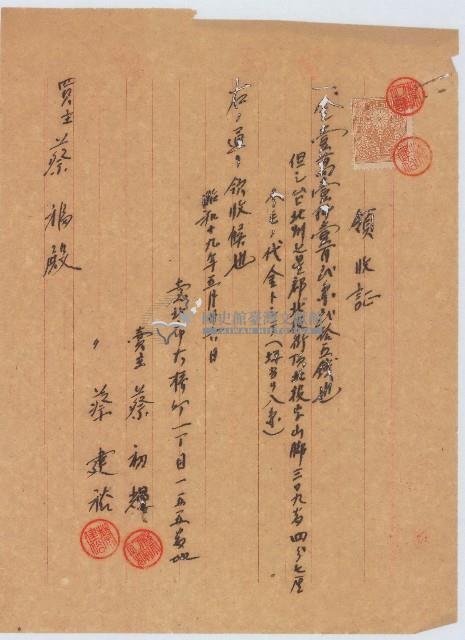 領收証
一、金壹萬壹仟壹百貳円貳拾五錢也
但シ台北州七星郡北投街頂北投字山腳三〇九番四分七厘
代金トシテ(坪當リ八円)
右ノ通リ領收候也
昭和十九年五月 日
臺北市大橋町一丁目一五五番地
賣主 蔡初
〃 蔡建裕
買主 蔡福殿
國史館臺灣文獻館
TAIWAN HISTORICA